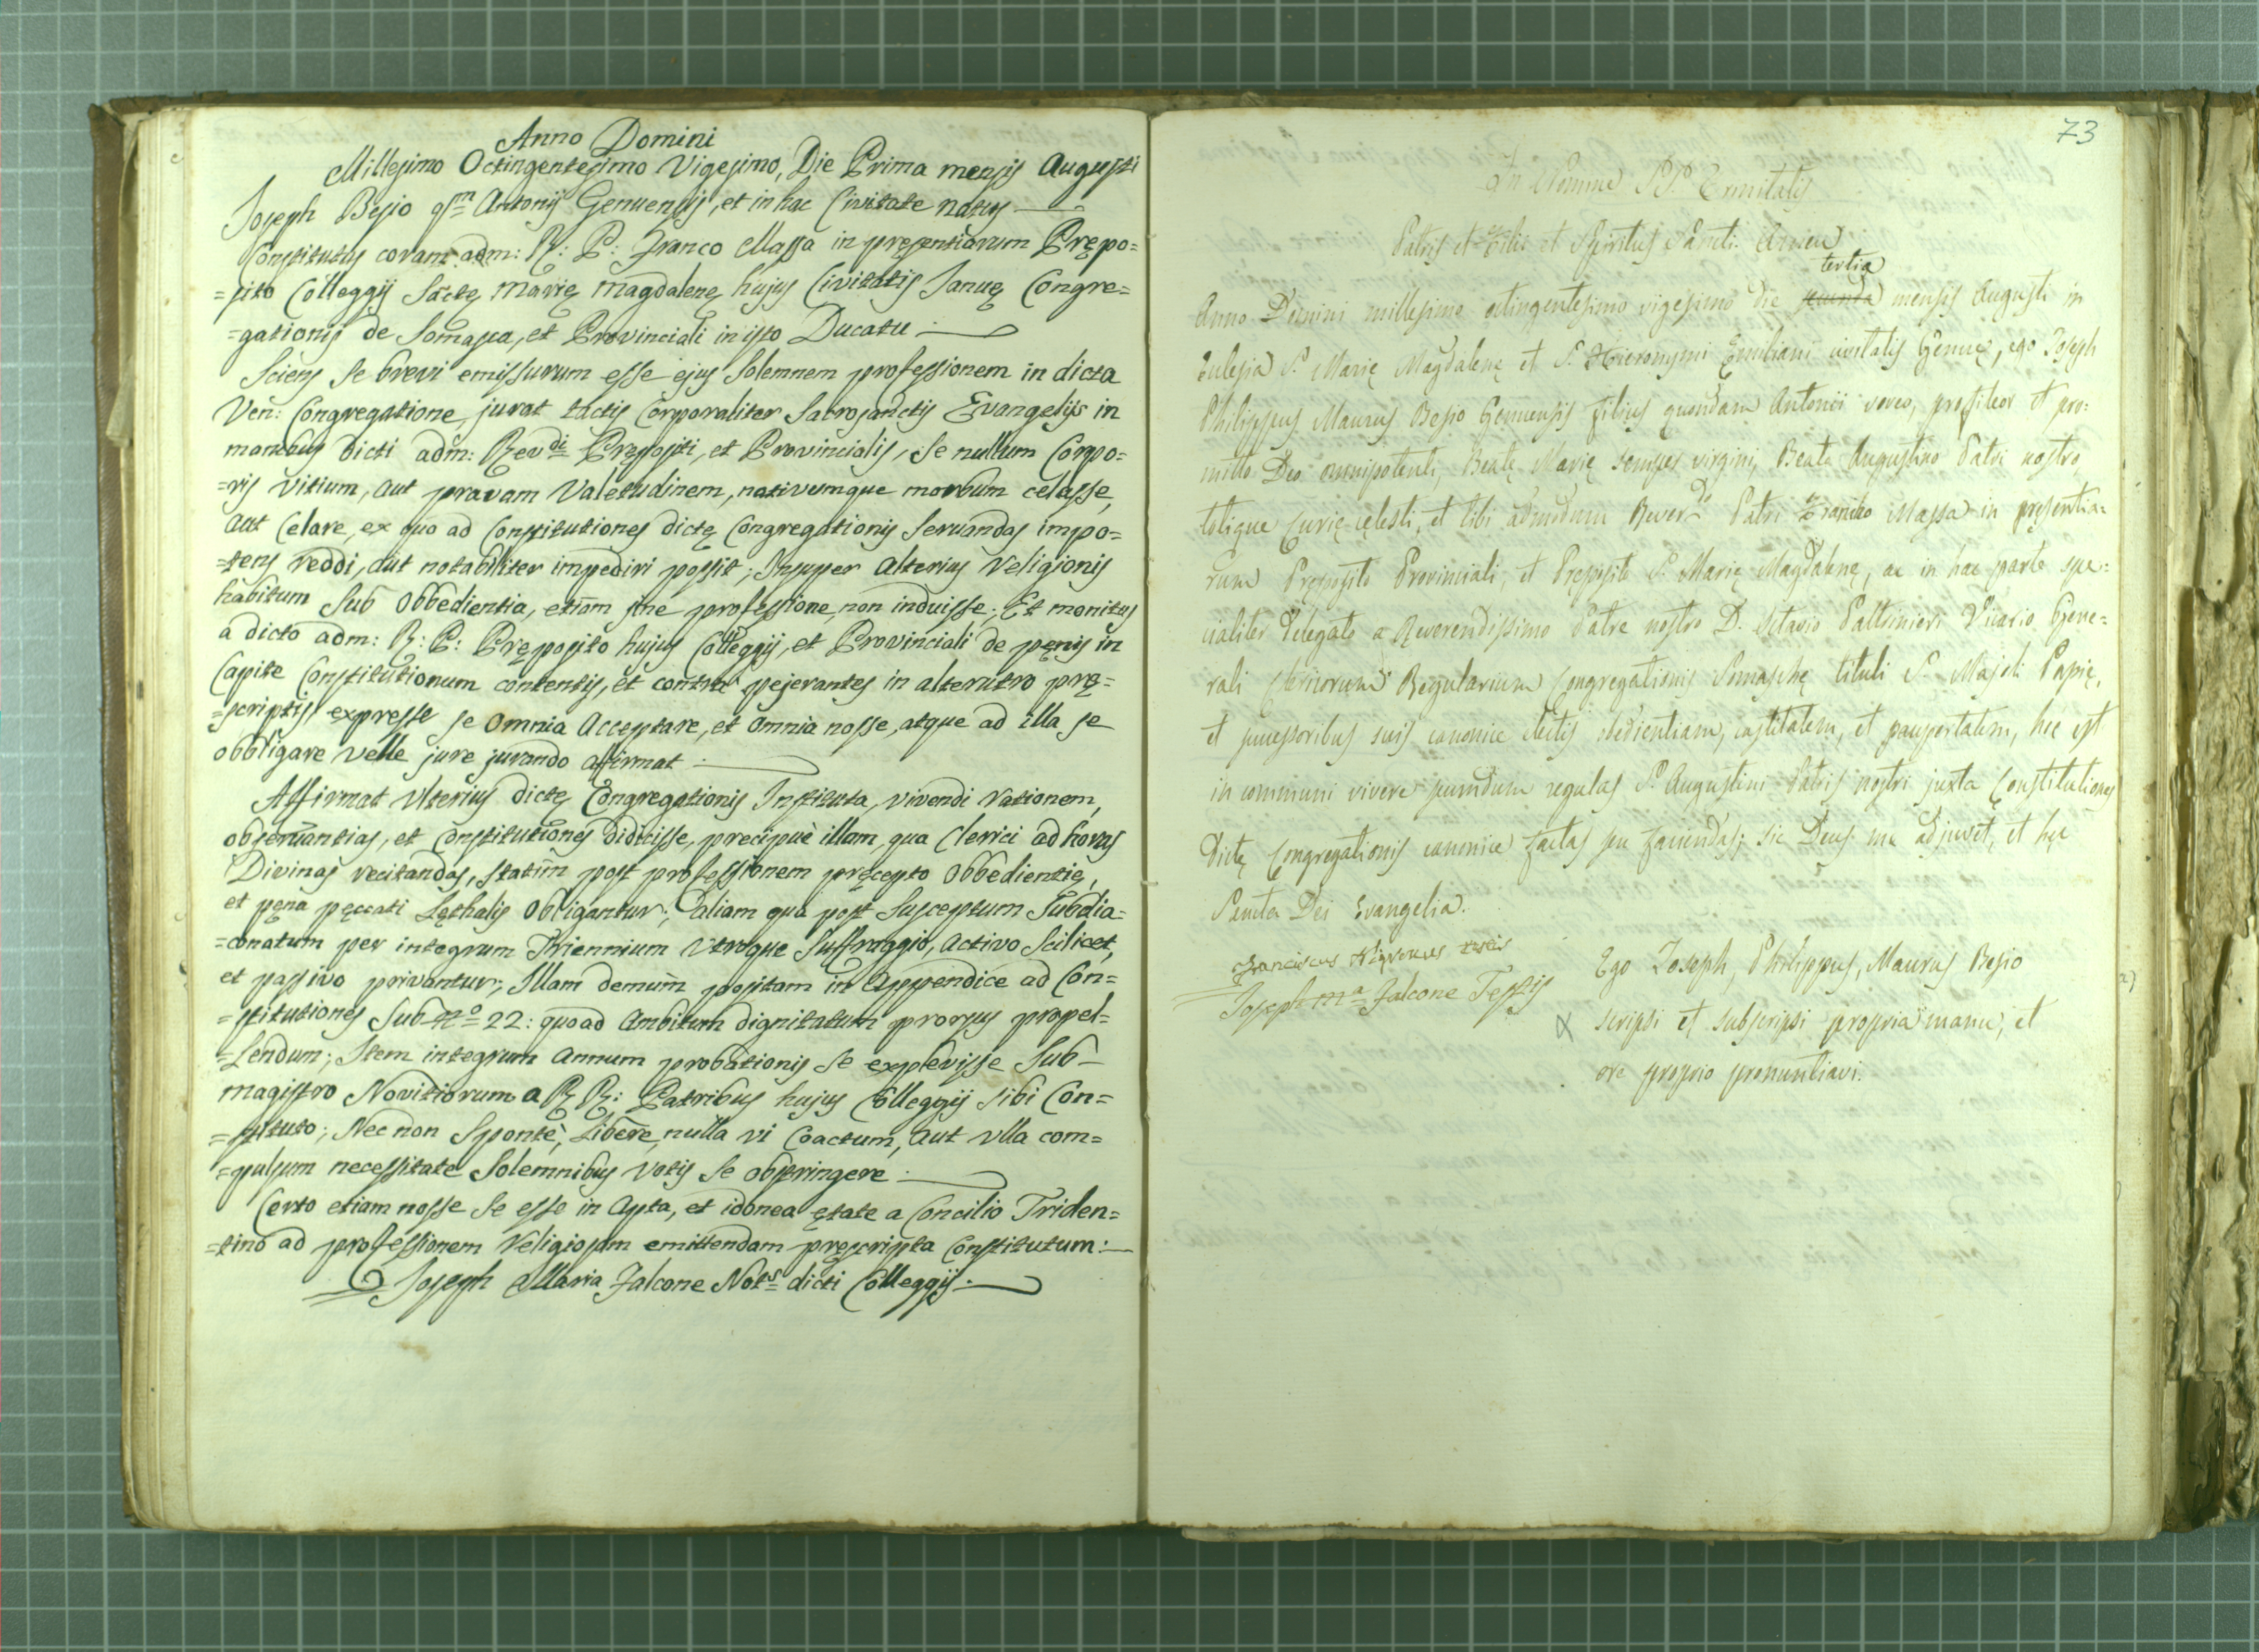 Anno Domini
Millesimo Octingentesimo Vigesimo, Die Prima mensis Augusti
Joseph Besio qm Antonij Genuensis, et in hac Civitate natus
Constitutus coram adm: R: P: Franco Massa in pręsentiarum Prępo=
=sito Colleggij Sctę Marię Magdalenę hujus Civitatis Januę Congre=
=gationis de Somasca, et Provinciali in isto Ducatu
Sciens se brevi emissurum esse ejus Solemnem professionem in dicta
Ven: Congregatione, jurat tactis Corporaliter Sacrosanctis Evangelijs in
manibus dicti adm: Revdi Prępositi, et Provincialis, se nullum Corpo=
=ris vitium, aut pravam Valetudinem, nativumque morbum celasse,
aut Celare, ex quo ad Constitutiones dictę Congregationis Servandas impo=
=tens reddi, aut notabiliter impediri possit; Insuper alterius Religionis
habitum sub Obbedientia, etiam sine professione, non induisse; Et monitus
a dicto adm: R: P: Pręposito hujus Colleggij, et Provinciali de pęnis in
Capite Constitutionum contentis, et contra pejerantes in alterutro prę=
=scriptis expresse se omnia Acceptare, et omnia nosse, atque ad illa se
obbligare velle jure jurando affirmat
Affirmat Ulterius dictę Congregationis Instituta, vivendi rationem,
observantias, et Constitutiones didicisse, precipuè illam, qua Clerici ad horas
Divinas recitandas, statim post professionem pręcepto Obbedientię,
et pęna pęccati Lęthalis Obligantur; aliam qua post Susceptum Subdia=
=conatum per integrum Triennium Utroque Suffraggio, activo Scilicet,
et passivo privantur; Illam demùm positam in Appendice ad Con=
=stitutiones Sub No 22: quoad Ambitum dignitatum prorsus propel=
=lendum; Item integrum annum probationis se explevisse Sub
magistro Novitiorum a RR: Patribus hujus Colleggij sibi Con=
=stituto; Nec non Spontè, Liberè, nulla vi Coactum, aut ulla com=
=pulsum necessitate Solemnibus Votis se obstringere
Certo etiam nosse se esse in Apta, et idonea ętate a Concilio Triden=
=tino ad professionem Religiosam emittendam pręscripta Constitutum:
Joseph Maria Falcone Nots dicti Colleggij
73
In Nomine SS. Trinitatis
Patris et Filii et Spiritus Sancti. Amen
tertia
Anno Domini millesimo octingentesimo vigesimo die secunda mensis Augusti in
Eulesia S. Marię Magdalenę et S. Hieronymi Emiliani civitatis Genuę, ego Joseph
Philippus Maurus Besio Genuensis filius quondam Antonii voveo, profiteor et pro=
mitto Deo omnipotenti Beatę Marię semper virgini, Beato Augustino Patri nostro
totique Curię cęlesti, et tibi admodum Reverdo Patri Franco Massa in pręsentia=
rum Pręposito Provinciali, et Pręposito S. Marię Magdalenę, ac in hac parte spe=
cialiter delegato a Reverendissimo Patre nostro D. Octavio Paltrinieri Vicario Gene=
rali Clericorum Regularium Congregationis Somaschę tituli S. Majoli Papię,
et successoribus suis canonice electis obedientiam, castitatem, et paupertatem, hoc est
in communi vivere secundum regulas S. Augustini Patris nostri juxta Constitutiones
dictę Congregationis canonice factas seu faciendas; sic Deus me adjuvet, et hęc
Sancta Dei Evangelia.
Franciscus Nigronus testis
Joseph Ma Falcone Testis
Ego Joseph, Philippus, Maurus Besio
scripsi et subscripsi propria manu, et
ore proprio pronuntiavi.